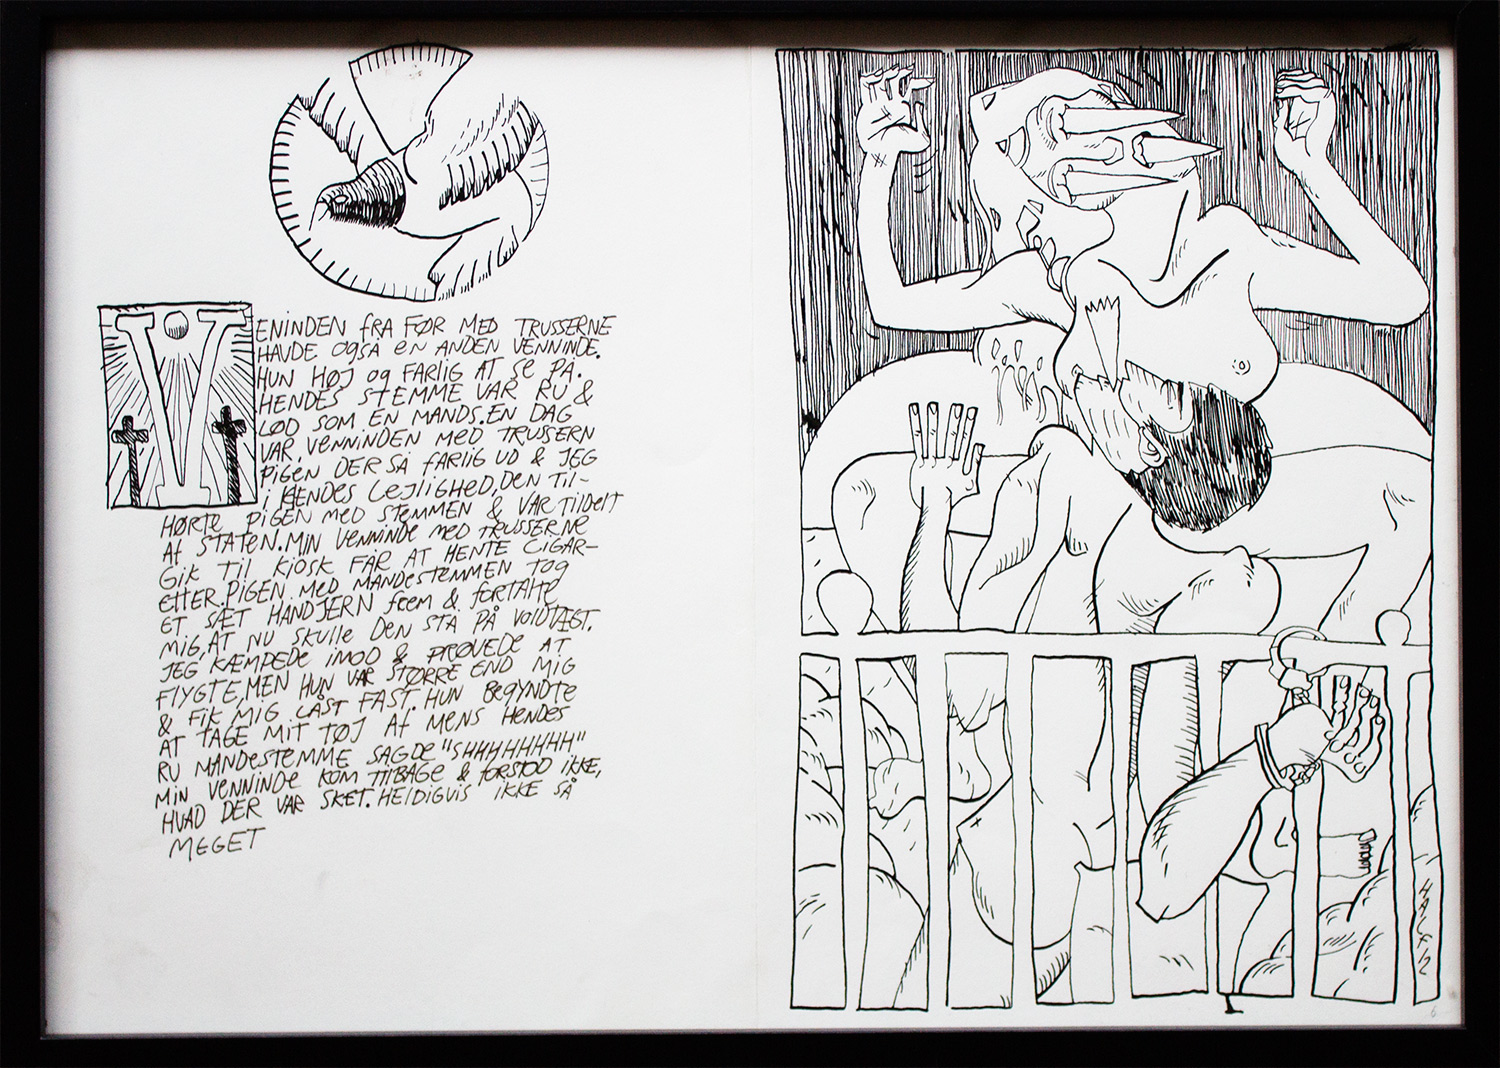 VENINDEN FRA FØR MED TRUSSERNE
HAVDE OGSA EN ANDEN VENNINDE.
HUN HØJ OG FARLIG AT SE PÅ.
HENDES STEMME VAR RU &
LØD SOM EN MANDS. EN DAG
VAR VENNINDEN MED TRUSSERN
PIGEN DER SÅ FARLIG UD & JEG
I HENDES LEJLIGHED. DEN TIL-
HØRTE PIGEN MED STEMMEN & VAR TILDELT
AF STATEN. MIN VENNINDE MED TRUSSERNE
GIK TIL KIOSK FAR AT HENTE CIGAR-
ETTER. PIGEN MED MANDESTEMMEN TOG
ET SÆT HANDJERN FREM & FORTALTE
MIG, AT NU SKULLE DEN STA PÅ VOLDTÆGT.
JEG KÆMPEDE IMOD & PRØVEDE AT
FLYGTE, MEN HUN VAR STØRRE END MIG
& FIK MIG LÅST FAST. HUN BEGYNDTE
AT TAGE MIT TØJ AF MENS HENDES
RU MANDESTEMME SAGDE "SHHHHHHHH"
MIN VENNINDE KOM TILBAGE & FORSTOD IKKE,
HVAD DER VAR SKET. HELDIGVIS IKKE SÅ
MEGET
6